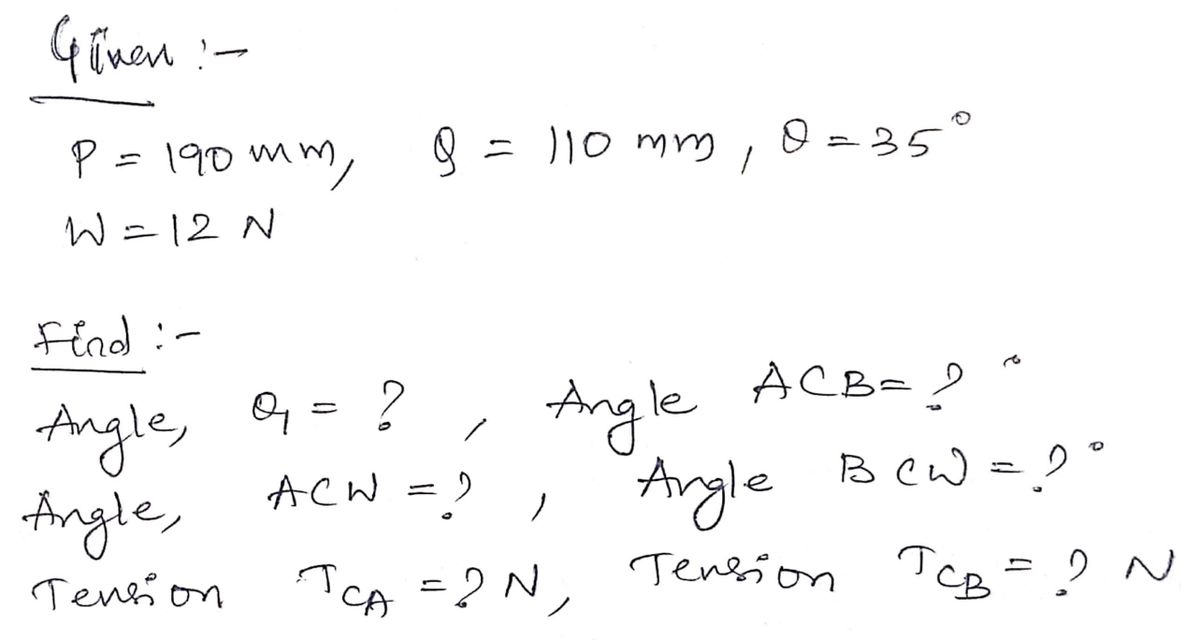 Given :-
P = 190 mm, Q = 110 mm, θ = 35°
W = 12 N
Find :-
Angle, θ1 = ? , Angle ACB = ?°
Angle, ACW = ? , Angle BCW = ?°
Tension TCA = ? N, Tension TCB = ? N